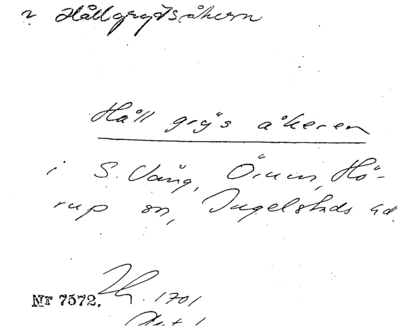 Hållgrydsåkern
Håll grys åkeren
i S. Vång, Örum, Hö-
rup sn, Ingelstads hd.
Nr 7572.
1701